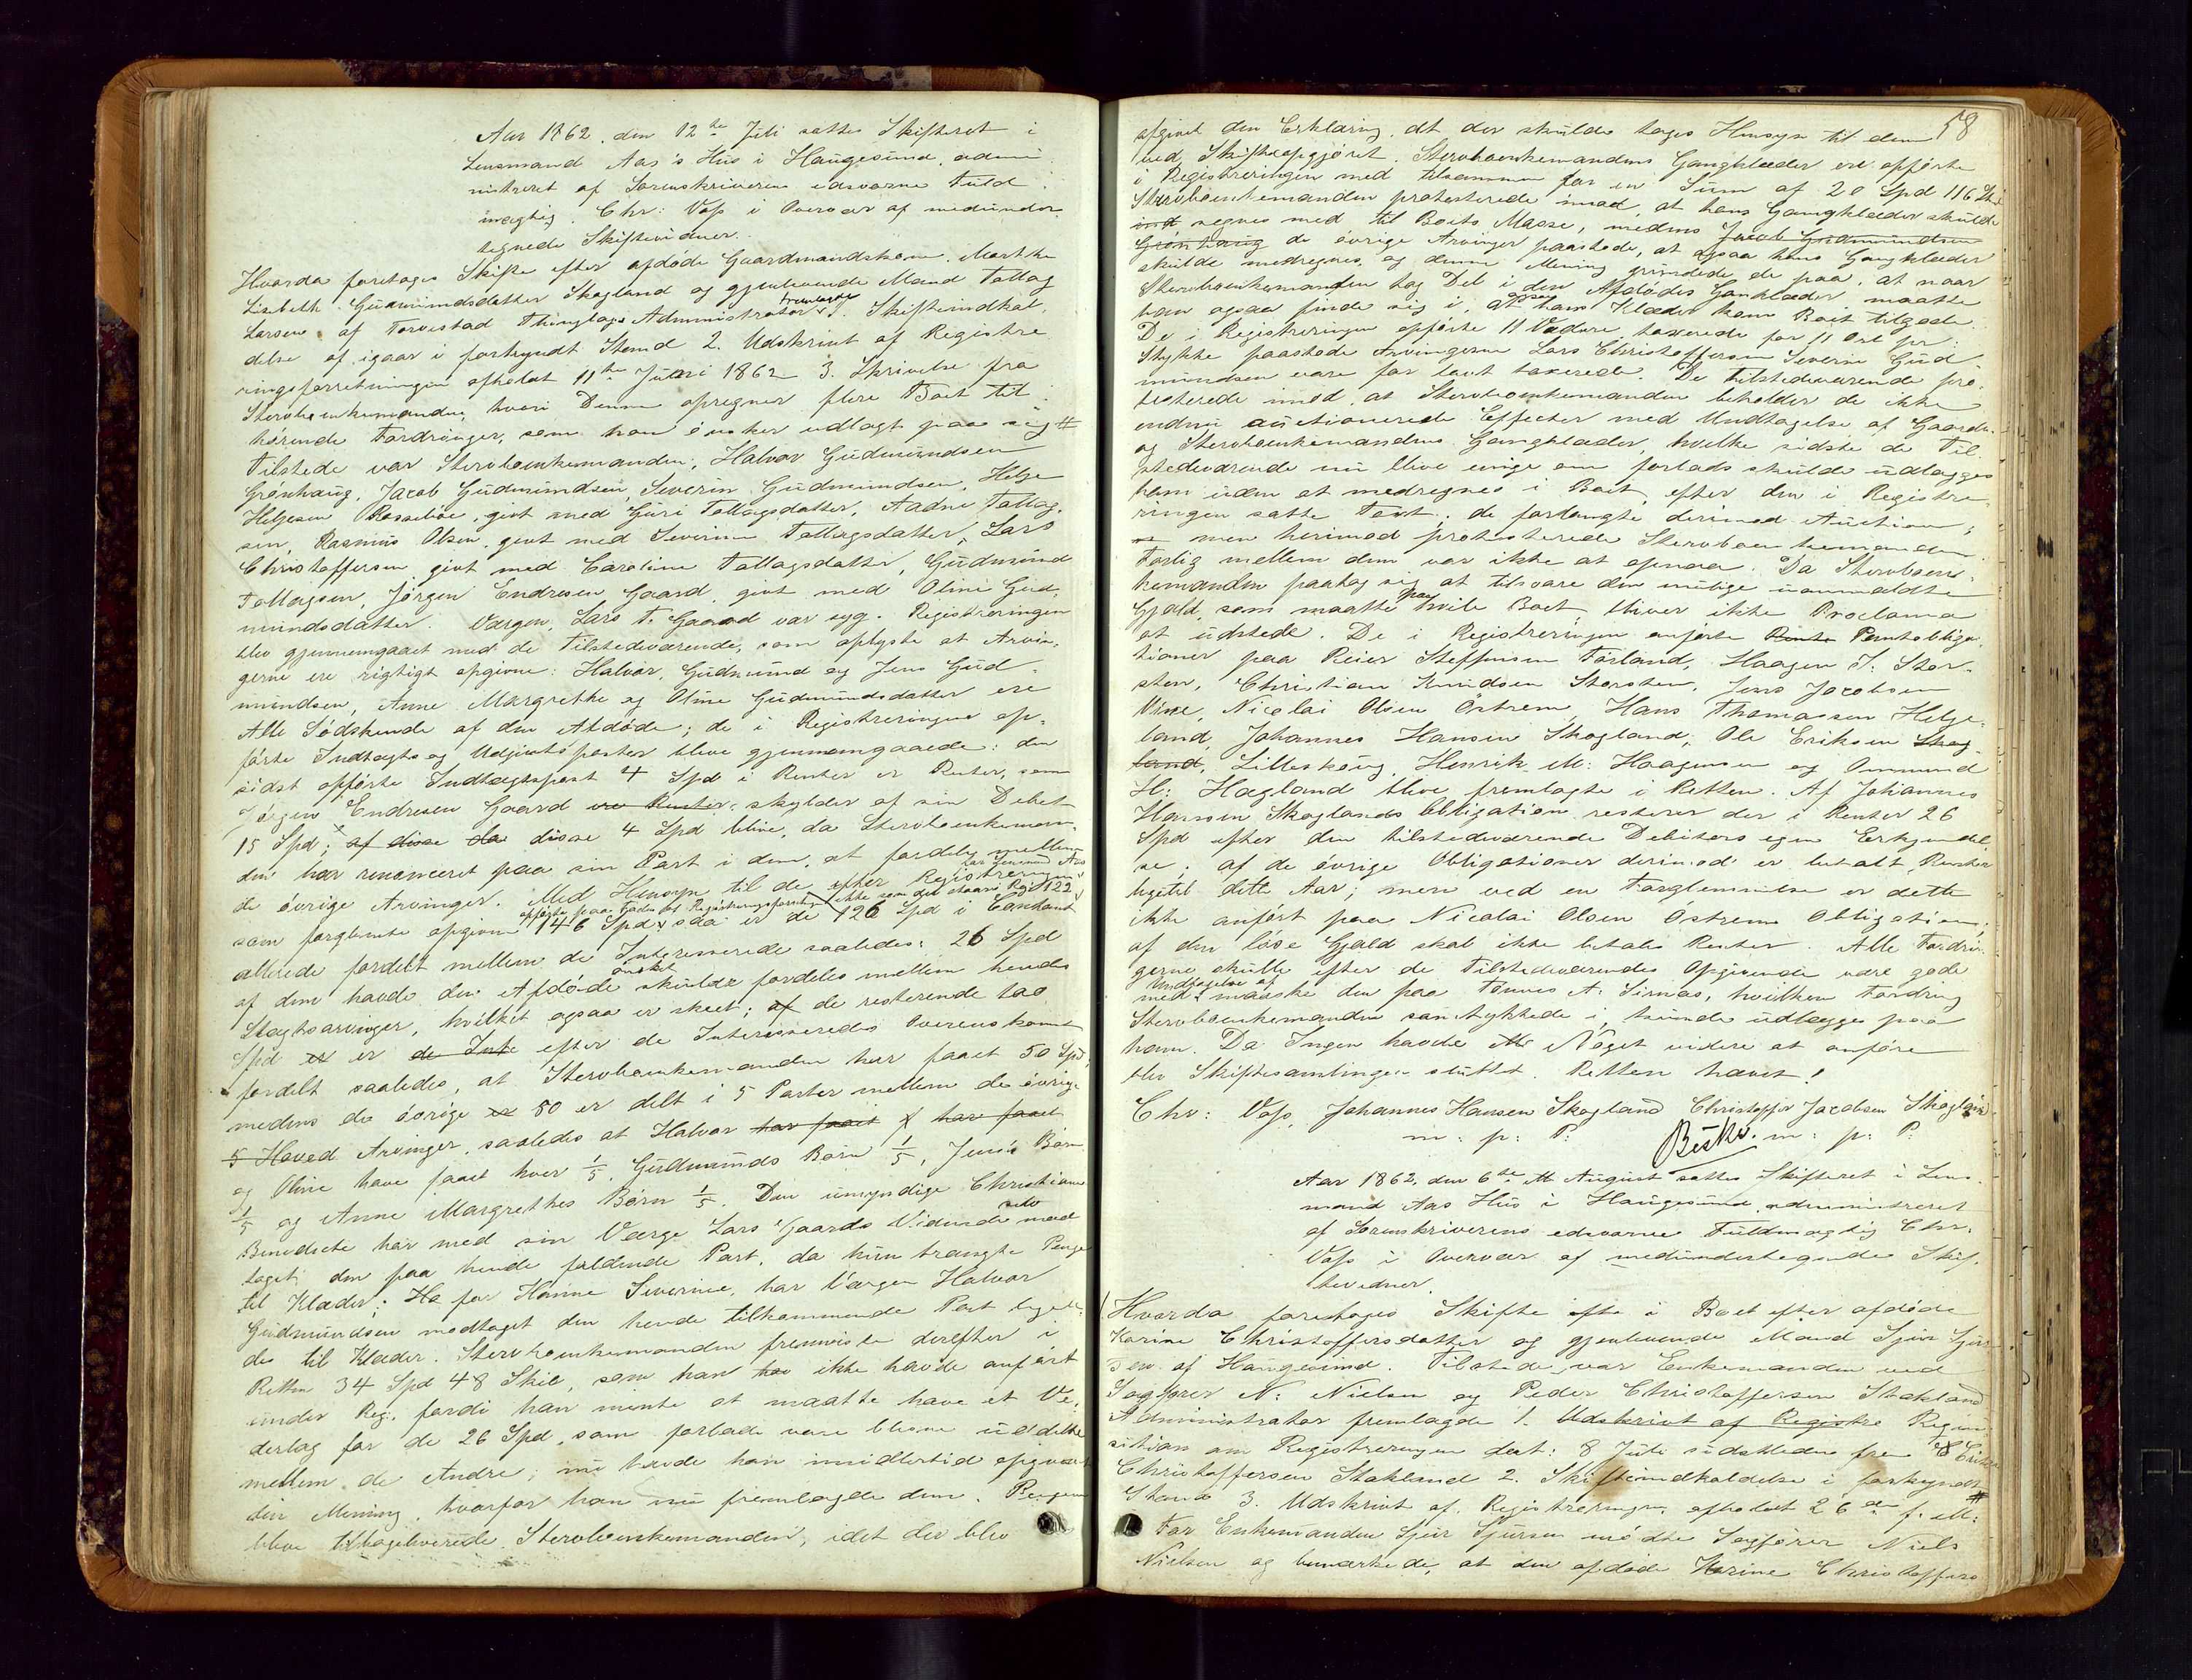 Aar 1862, den 12te Juli sattes Skifteret i
Lensmand Aas's Hus i Haugesund, admi
nistreret af Sorenskriverens edsvorne Fuld
mægtig Chr: Voss i Overvær af medunder
tegnede Skiftevidner.
Hvorda foretoges Skifte efter afdøde Gaardmandskone Marthe
Lisbeth Gudmundsdatter Skogland og gjenlevende Mand Tollag
Larsen af Torvestad Thinglag. Administrator fremlagde 1. Skifteindkal
delse af igaar i forkyndt Stand 2. Udskrivt af Registre
ringsforretningen afholdt 11te Juni 1862 3. Skrivelse fra
Stervboenkemanden, hvori Denne opregner flere Boet til
hørende Fordringer, som han ønsker udlagt paa sig #
Tilstede var Stervboenkemanden, Halvor Gudmundsen
Grønhaug, Jacob Gudmundsen, Severin Gudmundsen, Helge
Helgesen Rossebøe, givt med Guri Tollagsdatter, Aadne Tollag
sen, Rasmus Olsen, givt med Severine Tollagsdatter, Lars
Christoffersen givt med Caroline Tollagsdatter, Gudmund
Tollagsen, Jørgen Endresen Gaard, givt med Oline Gud
mundsdatter. Værgen, Lars T. Gaard var syg. Registreringen
blev gjennemgaaet med de Tilstedeværende, som oplyste at Arvin
gerne ere rigtigt opgivne: Halvor, Gudmund og Jens Gud
mundsen, Anne Margrethe og Oline Gudmundsdatter ere
Alle Sødskende af den Afdøde; de i Registreringen op
førte Indtægts og Udgivtsposter bleve gjennemgaaede: den
sidst opførte Indtægtspost 4 Spd i Renter er Renter, som
Jørgen Endresen Gaard ere Renter, skylder af sin Debet
15 Spd; af disse da disse 4 Spd blive, da Stervboenkeman
den har renonceret paa sin Part i dem, at fordele mellem
de øvrige Arvinger. Med Hensyn til de efter Registreringen
som forglemte opgivne 146 Spd, saa er de 126 Spd i Contant
allerede fordelt mellem de Interesserede saaledes: 26 Spd
af dem havde den Afdøde ønsket skulde fordeles mellem hendes
Slægtsarvinger, hvilket ogsaa er skeet; af de resterende 100
Spd er er de Inte efter de Interesseredes Overenskomst
fordelt saaledes, at Stervboenkemanden har faaet 50 Spd,
medens de øvrige er 50 er delt i 5 Parter mellem de øvrige
5 Hoved Arvinger, saaledes at Halvor har faaet har faaet
og Oline have faaet hver 1/5, Gudmunds Børn 1/5, Jens's Børn
1/5 og Anne Margrethes Børn 1/5. Den umyndige Christiane
Benedicte har med sin Værge Lars Gaards Vidende selv mod
taget den paa hende faldende Part, da hun trængte Penge
til Klæder; Ha for Hanne Severine, har Værgen Halvor
Gudmundsen modtaget den hende tilkommende Part lige
des til Klæder. Stervboenkemanden fremviste derefter i
Retten 34 Spd 48 Skil, som han har ikke havde anført
under Reg. fordi han mente at maatte have et Ve
derlag for de 26 Spd, som forlods vare blevne uddelte
mellem de Andre; nu havde han imidlertid opgivet
din Mening, hvorfor han nu fremlagde dem. Pengene
bleve tilbageleverede Stervboenkemanden, idet der blev
58
afgivet den Erklæring, at der skulde tages Hensyn til dem
ved Skifteopgjøret. Stervboenkemandens Gangklæder ere opførte
i Registreringen med tilsammen for en Sum af 20 Spd 116 Sk:
Stervboenkemanden protesterede imod, at hans Gangklæder skulde
regnes med til Boets Masse, medens Jacob Gudmundsen
Grønhaug de øvrige Arvinger paastode, at ogsaa hans Gangklæder
skulde medregnes, og denne Mening grundede de paa, at naar
Stervboenkemanden tog Del i den Afdødes Gangklæder maatte
han ogsaa finde sig i, at hans Klæder kom Boet tilgode.
De i Registreringen opførte 11 Vædere, taxerede for 11 Ort pr:
Stykke paastode Arvingerne Lars Christoffersen Severin Gud
mundsen vare for lavt taxerede. De Tilstedeværende pro
testerede imod, at Stervboenkemanden beholder de ikke
endnu auctionerede Effecter med Undtagelse af Gaarden
og Stervboenkemandens Gangklæder, hvilke sidste de Til
stedeværende nu bleve enige om forlods skulde udlægges
ham uden at medregnes i Boet, efter den i Registre
ringen satte Taxt, de forlangte derimod Auction;
men herimod protesterede Stervboenkemanden.
Forlig mellem dem var ikke at opnaa. Da Stervboen
kemanden paatog sig at tilsvare den mulige uanmeldte
Gjæld, som maatte hvile paa Boet bliver ikke Proclama
at udstede. De i Registreringen anførte Rente Pantobliga
tioner paa Reier Steffensen Førland, Haagen J. Stor
sten, Christian Knudsen Storsten, Jens Jacobsen
Vinje, Nicolai Olsen Østrem, Hans Thomassen Helge
land, Johannes Hansen Skogland, Ole Eriksen Skog
land, Lilleskoug, Henrik M: Haagensen og Ommund
H: Hagland bleve fremlagte i Retten. Af Johannes
Hansen Skoglands Obligation resterer der i Renter 26
Spd efter den tilstedeværende Debitors egen Erkjendel
se; af de øvrige Obligationer derimod er betalt Renter
ligetil dette Aar; men ved en Forglemmelse er dette
ikke anført paa Nicolai Olsen Østrems Obligation;
af den løse Gjæld skal ikke betales Renter. Alle Fordrin
gerne skulle efter de Tilstedeværendes Opgivende være gode
med Undtagelse af maaske den paa Tønnes A. Sirnæs, hvilken Fordring
Stervboenkemanden samtykkede i kunde udlægges paa
ham. Da Ingen havde Noget videre at anføre
blev Skiftesamlingen sluttet. Retten hævet!
Chr: Voss, Johannes Hansen Skogland Christoffer Jacobsen Skogland
m: p: P: Beskr. m: p: P:
Aar 1862, den 6te August sattes Skifteret i Lens
mand Aas Hus i Haugesund, administreret
af Sorenskriverens edsvorne Fuldmægtig Chr.
Voss i Overvær af medundertegnede Skif
tevidner.
Hvorda foretoges Skifte i Boet efter afdøde
Karine Christoffersdatter og gjenlevende Mand Sjur Sjur
sen af Haugesund. Tilstede var Enkemanden ved
Sagfører N: Nielsen og Peder Christoffersen Stakland
Administrator fremlagde 1. Udskrivt af Registre Requi
sition om Registreringen dat: 8 Juli sidstleden fra Erik
Christoffersen Stakland 2. Skifteindkaldelse i forkyndt
Stand 3. Udskrivt af Registreringen afholdt 26de f. M: #
For Enkemanden Sjur Sjursen mødte Sagfører Niels
Nielsen og bemærkede, at den afdøde Karine Christoffers